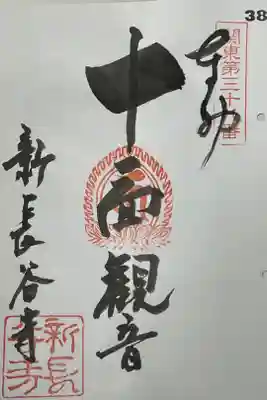 38
奉納
関東第三十番
十一面觀音
新長谷寺
新長谷寺